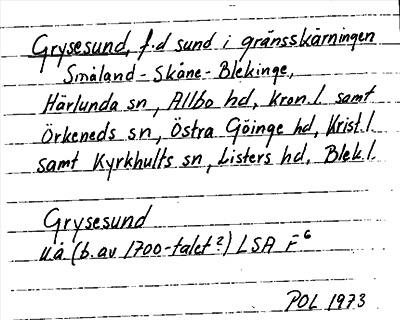 Grysesund, f.d sund i gränsskärningen
Småland - Skåne - Blekinge,
Härlunda sn, Allbo hd, Kron. l. samt
Örkeneds sn, Östra Göinge hd, Krist. l.
samt Kyrkhults sn, Listers hd, Blek. l.
Grysesund
u.å (b. av 1700-talet?) LSA F 6
POL 1973